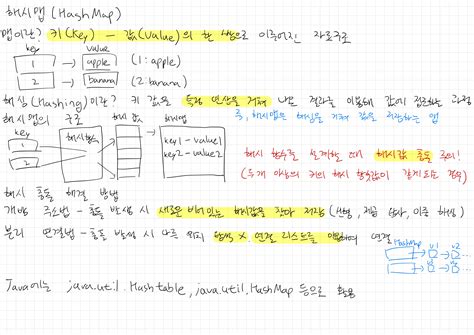 해시맵 (HashMap)
맵이란? 키(Key) - 값(Value)의 한 쌍으로 이루어진 자료구조
key value
1 → apple (1: apple)
2 → banana (2: banana)
해싱(Hashing)이란? 키 값을 특정 연산을 거쳐 나온 결과를 이용해 값에 접근하는 과정
해시맵의 구조 즉, 해시맵은 해싱을 거쳐 값을 저장하는 맵
key 해시함수 해시 값 해시맵
1 key1 - value1
2 key2 - value2
해시 함수를 설계할 때 해시값 충돌 주의!
(두개 이상의 키의 해시 함수값이 같게되는 경우)
해시 충돌 해결 방법
개방 주소법 - 충돌 발생 시 새로운 비어있는 해시값을 찾아 저장 (선형, 제곱 탐사, 이중 해싱)
분리 연결법 - 충돌 발생 시 다른 위치 탐색 X 연결 리스트를 이용하여 연결
HashMap v1 v2
Java에는 java.util.Hashtable, java.util.HashMap 등으로 활용